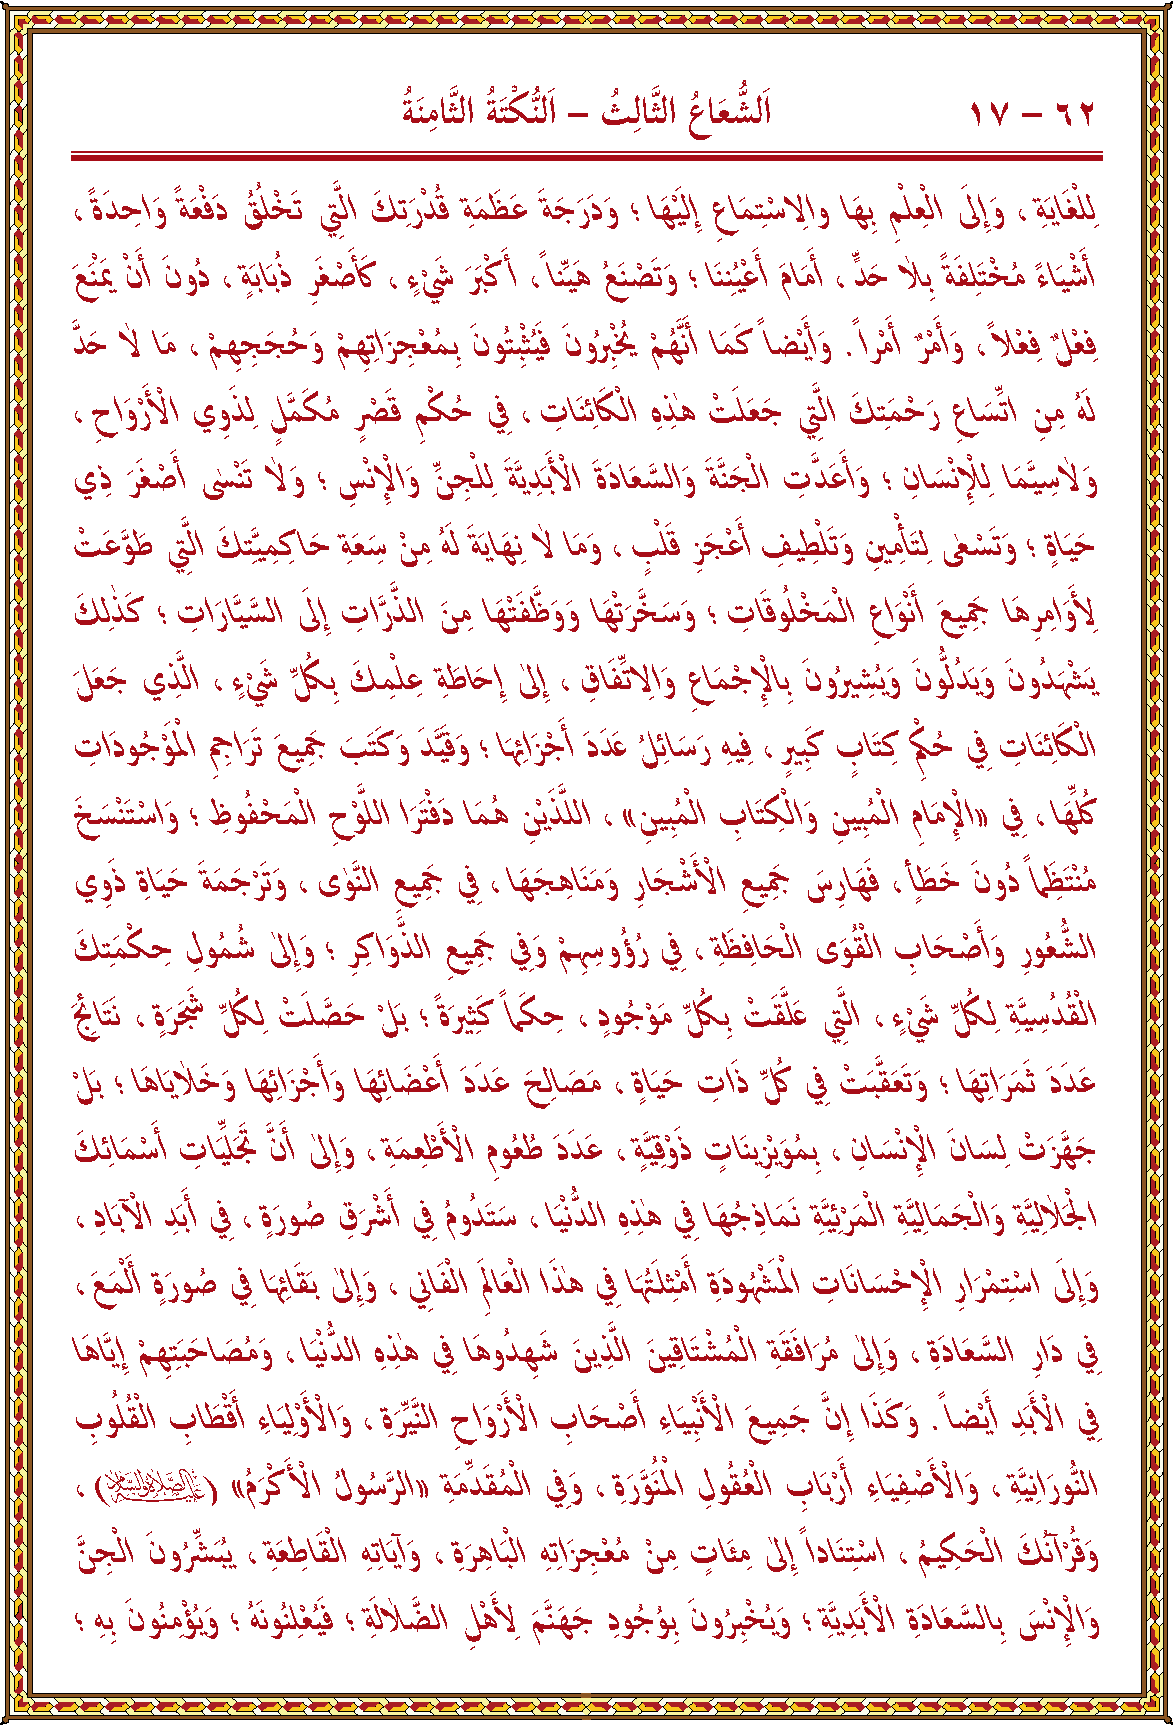 ٦٢ – ١٧ اَلشُّعَاعُ الثَّالِثُ – اَلنُّكْتَةُ الثَّامِنَةُ
لِلْغَايَةِ ، وَإِلَى الْعِلْمِ بِهَا وَالِاسْتِمَاعِ إِلَيْهَا ؛ وَدَرَجَةَ عَظَمَةِ قُدْرَتِكَ الَّتِي تَخْلُقُ دَفْعَةً وَاحِدَةً ،
أَشْيَاءَ مُخْتَلِفَةً بِلاٰ حَدٍّ ، أَمَامَ أَعْيُنِنَا ؛ وَتَصْنَعُ هَيِّناً ، أَكْبَرَ شَيْءٍ ، كَأَصْغَرِ ذُبَابَةٍ ، دُونَ أَنْ يَمْنَعَ
فِعْلٌ فِعْلاً ، وَأَمْرٌ أَمْراً . وَأَيْضاً كَمَا أَنَّهُمْ يُخْبِرُونَ فَيُثْبِتُونَ بِمُعْجِزَاتِهِمْ وَحُجَجِهِمْ ، مَا لاٰ حَدَّ
لَهُ مِنِ اتِّسَاعِ رَحْمَتِكَ الَّتِي جَعَلَتْ هٰذِهِ الْكَائِنَاتِ ، فِي حُكْمِ قَصْرٍ مُكَمَّلٍ لِذَوِي الْأَرْوَاحِ ،
وَلاٰسِيَّمَا لِلْإِنْسَانِ ؛ وَأَعَدَّتِ الْجَنَّةَ وَالسَّعَادَةَ الْأَبَدِيَّةَ لِلْجِنِّ وَالْإِنْسِ ؛ وَلاٰ تَنْسٰى أَصْغَرَ ذِي
حَيَاةٍ ؛ وَتَسْعٰى لِتَأْمِينِ وَتَلْطِيفِ أَعْجَزِ قَلْبٍ ، وَمَا لاٰ نِهَايَةَ لَهُ مِنْ سَعَةِ حَاكِمِيَّتِكَ الَّتِي طَوَّعَتْ
لِأَوَامِرِهَا جَمِيعَ أَنْوَاعِ الْمَخْلُوقَاتِ ؛ وَسَخَّرَتْهَا وَوَظَّفَتْهَا مِنَ الذَّرَّاتِ إِلَى السَّيَّارَاتِ ؛ كَذٰلِكَ
يَشْهَدُونَ وَيَدُلُّونَ وَيُشِيرُونَ بِالْإِجْمَاعِ وَالِاتِّفَاقِ ، إِلىٰ إِحَاطَةِ عِلْمِكَ بِكُلِّ شَيْءٍ ، الَّذِي جَعَلَ
الْكَائِنَاتِ فِي حُكْمِ كِتَابٍ كَبِيرٍ ، فِيهِ رَسَائِلُ عَدَدَ أَجْزَائِهَا ؛ وَقَيَّدَ وَكَتَبَ جَمِيعَ تَرَاجِمِ الْمَوْجُودَاتِ
كُلِّهَا ، فِي «الْإِمَامِ الْمُبِينِ وَالْكِتَابِ الْمُبِينِ» ، اللَّذَيْنِ هُمَا دَفْتَرَا اللَّوْحِ الْمَحْفُوظِ ؛ وَاسْتَنْسَخَ
مُنْتَظِماً دُونَ خَطَأٍ ، فَهَارِسَ جَمِيعِ الْأَشْجَارِ وَمَنَاهِجَهَا ، فِي جَمِيعِ النَّوٰى ، وَتَرْجَمَةَ حَيَاةِ ذَوِي
الشُّعُورِ وَأَصْحَابِ الْقُوَى الْحَافِظَةِ ، فِي رُؤُوسِهِمْ وَفِي جَمِيعِ الذَّوَاكِرِ ؛ وَإِلىٰ شُمُولِ حِكْمَتِكَ
الْقُدُسِيَّةِ لِكُلِّ شَيْءٍ ، الَّتِي عَلَّقَتْ بِكُلِّ مَوْجُودٍ ، حِكَماً كَثِيرَةً ؛ بَلْ حَصَّلَتْ لِكُلِّ شَجَرَةٍ ، نَتَائِجَ
عَدَدَ ثَمَرَاتِهَا ؛ وَتَعَقَّبَتْ فِي كُلِّ ذَاتِ حَيَاةٍ ، مَصَالِحَ عَدَدَ أَعْضَائِهَا وَأَجْزَائِهَا وَخَلاٰيَاهَا ؛ بَلْ
جَهَّزَتْ لِسَانَ الْإِنْسَانِ ، بِمُوَيْزِينَاتٍ ذَوْقِيَّةٍ ، عَدَدَ طُعُومِ الْأَطْعِمَةِ ، وَإِلىٰ أَنَّ تَجَلِّيَاتِ أَسْمَائِكَ
الْجَلاٰلِيَّةِ وَالْجَمَالِيَّةِ الْمَرْئِيَّةِ نَمَاذِجُهَا فِي هٰذِهِ الدُّنْيَا ، سَتَدُومُ فِي أَشْرَقِ صُورَةٍ ، فِي أَبَدِ الْآبَادِ ،
وَإِلَى اسْتِمْرَارِ الْإِحْسَانَاتِ الْمَشْهُودَةِ أَمْثِلَتُهَا فِي هٰذَا الْعَالَمِ الْفَانِي ، وَإِلىٰ بَقَائِهَا فِي صُورَةٍ أَلْمَعَ ،
فِي دَارِ السَّعَادَةِ ، وَإِلىٰ مُرَافَقَةِ الْمُشْتَاقِينَ الَّذِينَ شَهِدُوهَا فِي هٰذِهِ الدُّنْيَا ، وَمُصَاحَبَتِهِمْ إِيَّاهَا
فِي الْأَبَدِ أَيْضاً . وَكَذَا إِنَّ جَمِيعَ الْأَنْبِيَاءِ أَصْحَابِ الْأَرْوَاحِ النَّيِّرَةِ ، وَالْأَوْلِيَاءِ أَقْطَابِ الْقُلُوبِ
النُّورَانِيَّةِ ، وَالْأَصْفِيَاءِ أَرْبَابِ الْعُقُولِ الْمُنَوَّرَةِ ، وَفِي الْمُقَدِّمَةِ «الرَّسُولُ الْأَكْرَمُ» (عَلَيْهِ الصَّلَاةُ وَالسَّلَامُ) ،
وَقُرْآنُكَ الْحَكِيمُ ، اسْتِنَاداً إِلىٰ مِئَاتٍ مِنْ مُعْجِزَاتِهِ الْبَاهِرَةِ ، وَآيَاتِهِ الْقَاطِعَةِ ، يُبَشِّرُونَ الْجِنَّ
وَالْإِنْسَ بِالسَّعَادَةِ الْأَبَدِيَّةِ ؛ وَيُخْبِرُونَ بِوُجُودِ جَهَنَّمَ لِأَهْلِ الضَّلاٰلَةِ ؛ فَيُعْلِنُونَهُ ؛ وَيُؤْمِنُونَ بِهِ ؛